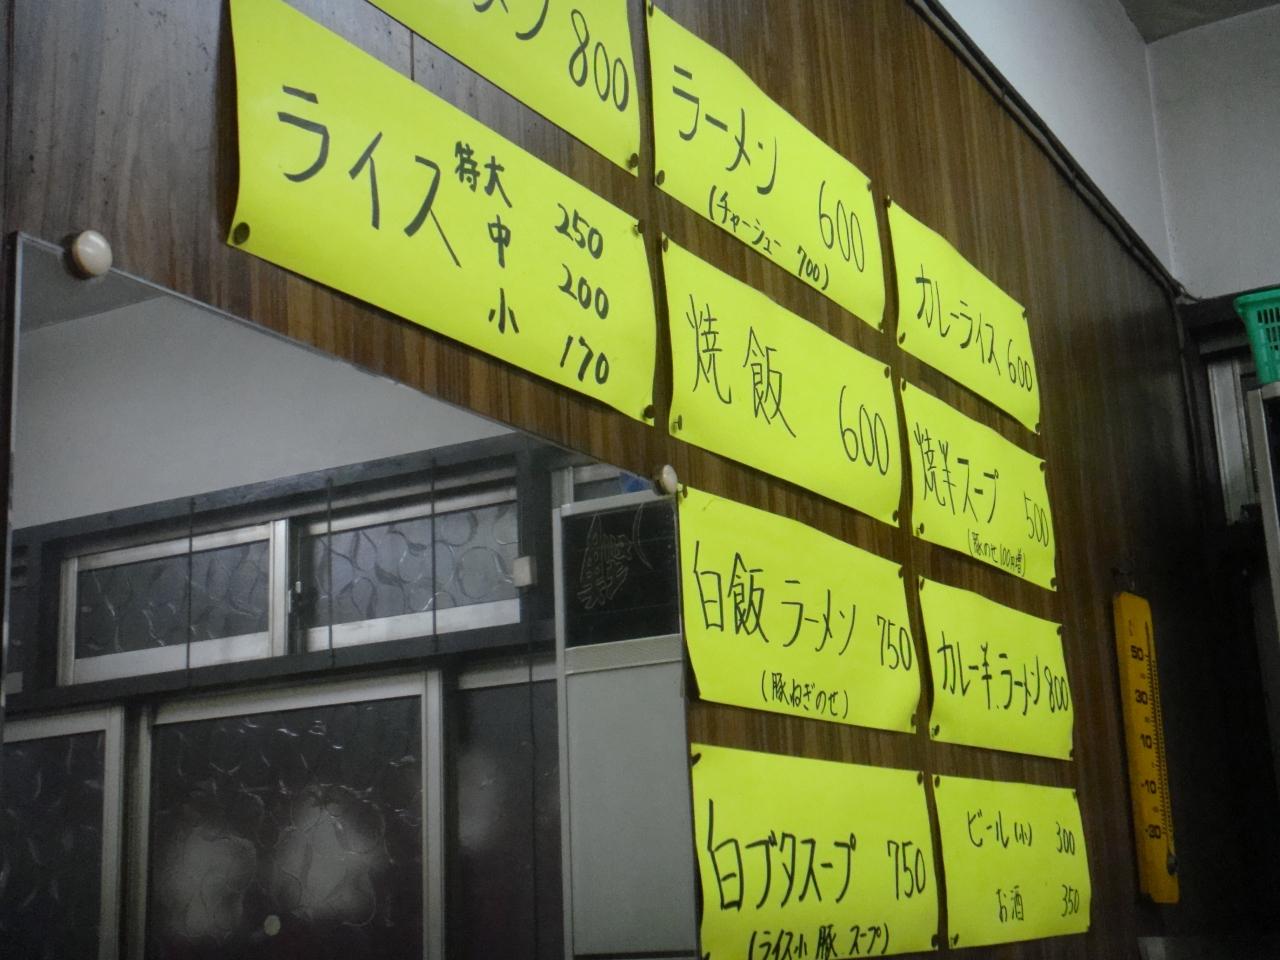 メン 800
ライス 特大 250
中 200
小 170
ラーメン 600
(チャーシュー 700)
焼飯 600
白飯 ラーメン 750
(豚ねぎのせ)
白ブタスープ 750
(ライス小 豚 スープ)
カレーライス 600
焼羊スープ 500
(豚のせ100円増)
カレー羊ラーメン 800
ビール(小) 300
お酒 350
50
30
10
-10
-30